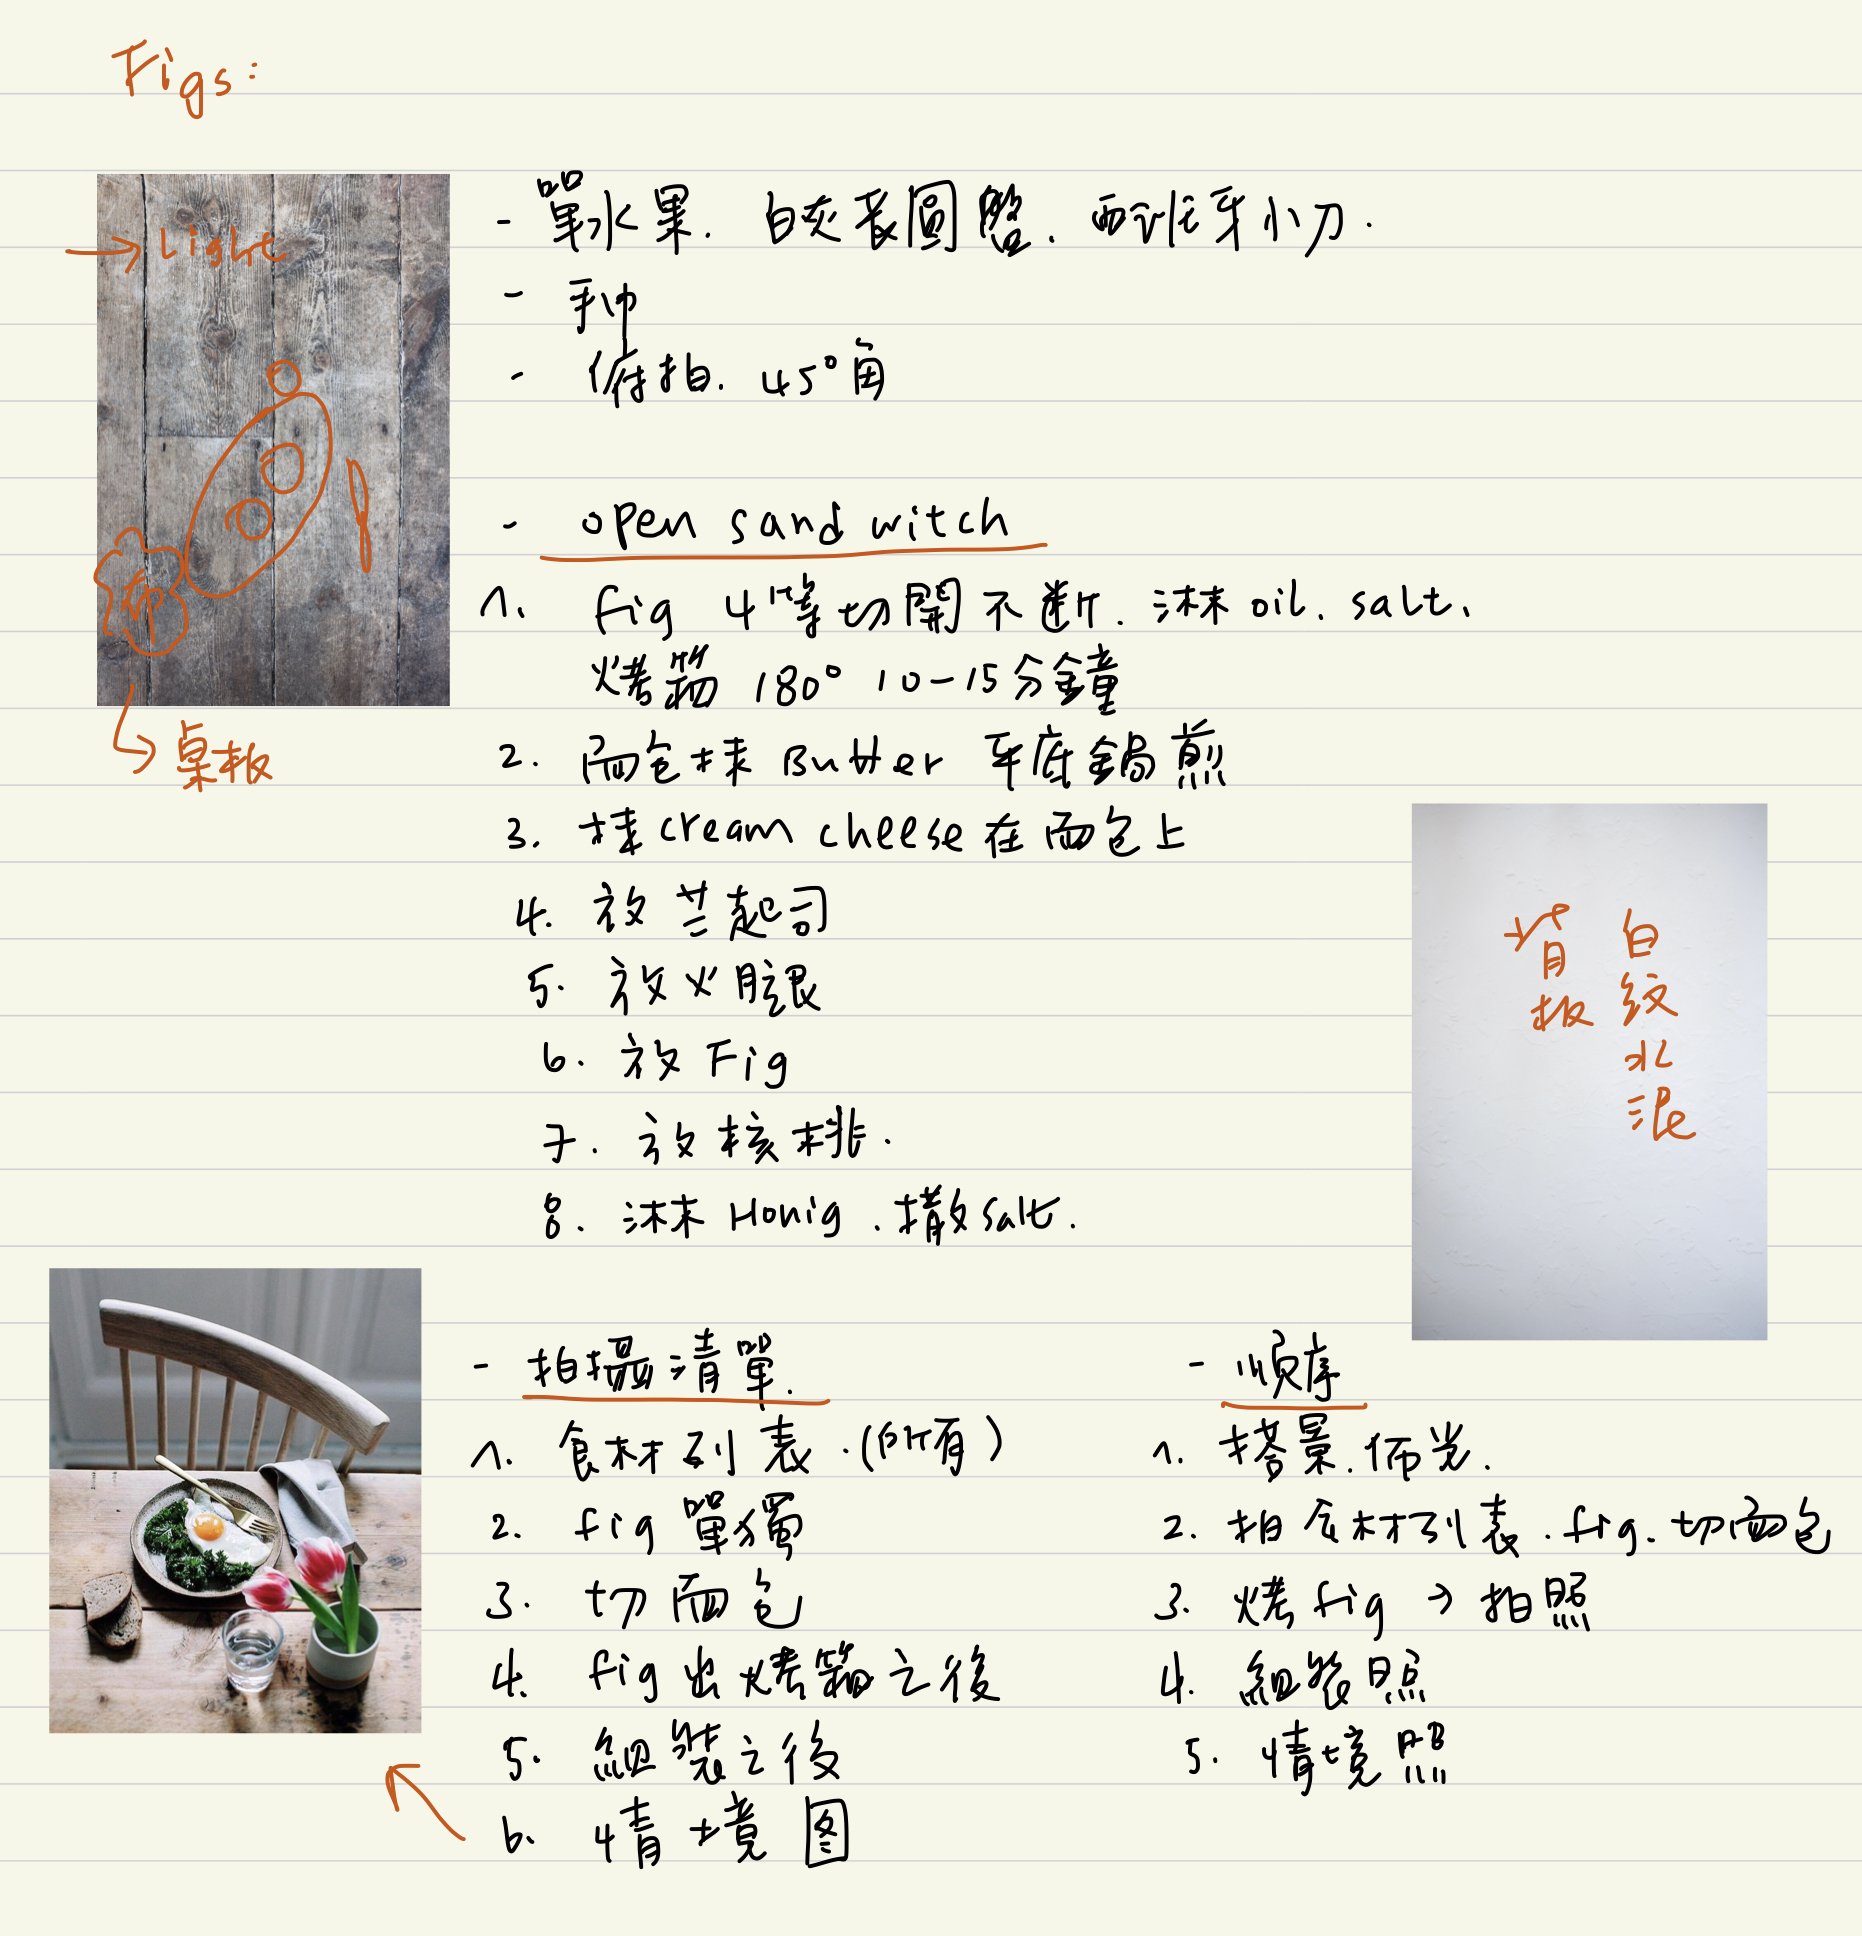 Figs:
Light
布
桌板
- 單水果. 白灰長圓盤. 西班牙小刀.
- 手巾
- 俯拍. 45°角
- open sandwitch
1. fig 4等切開不斷. 淋 oil. salt.
烤箱 180° 10-15分鐘
2. 面包抹 Butter 平底鍋煎
3. 抹 cream cheese 在面包上
4. 放芝起司
5. 放火腿
6. 放 Fig
7. 放核桃.
8. 淋 Honig. 撒 salt.
背板
白紋水泥
- 拍攝清單.
1. 食材列表.(所有)
2. fig 單獨
3. 切面包
4. fig 出烤箱之後
5. 組裝之後
6. 情境图
- 順序
1. 搭景. 佈光.
2. 拍食材列表. fig. 切面包
3. 烤 fig → 拍照
4. 組裝照
5. 情境照